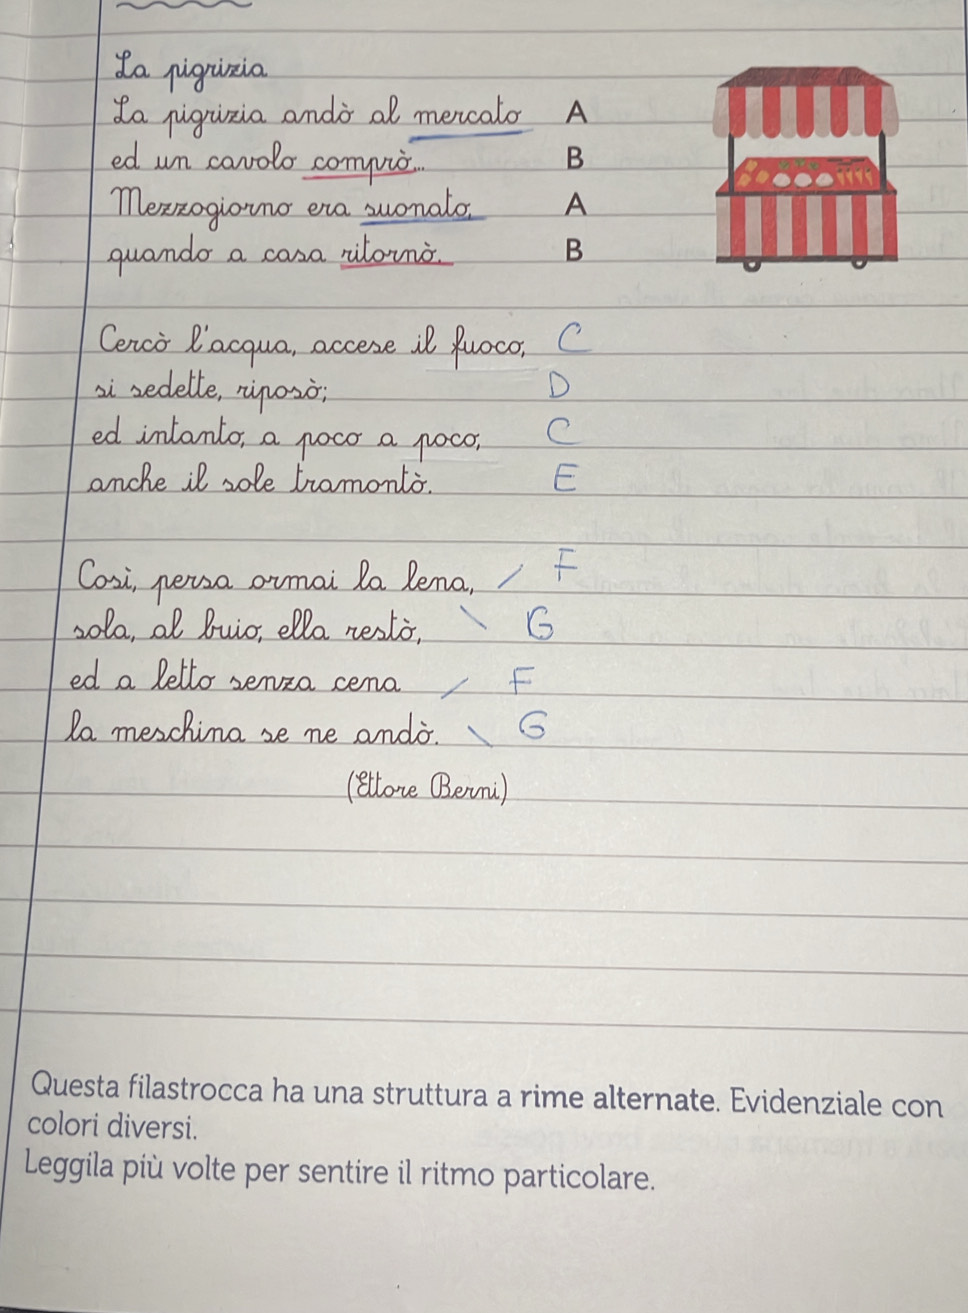 La pigrizia
La pigrizia andò al mercato A
ed un cavolo comprò... B
Mezzogiorno era suonato, A
quando a casa ritornò. B
Cercò l'acqua, accese il fuoco, C
si sedette, riposò; D
ed intanto, a poco a poco, C
anche il sole tramontò. E
Così, persa ormai la lena, F
sola, al buio, ella restò, G
ed a letto senza cena F
la meschina se ne andò. G
(Ettore Berni)
Questa filastrocca ha una struttura a rime alternate. Evidenziale con
colori diversi.
Leggila più volte per sentire il ritmo particolare.